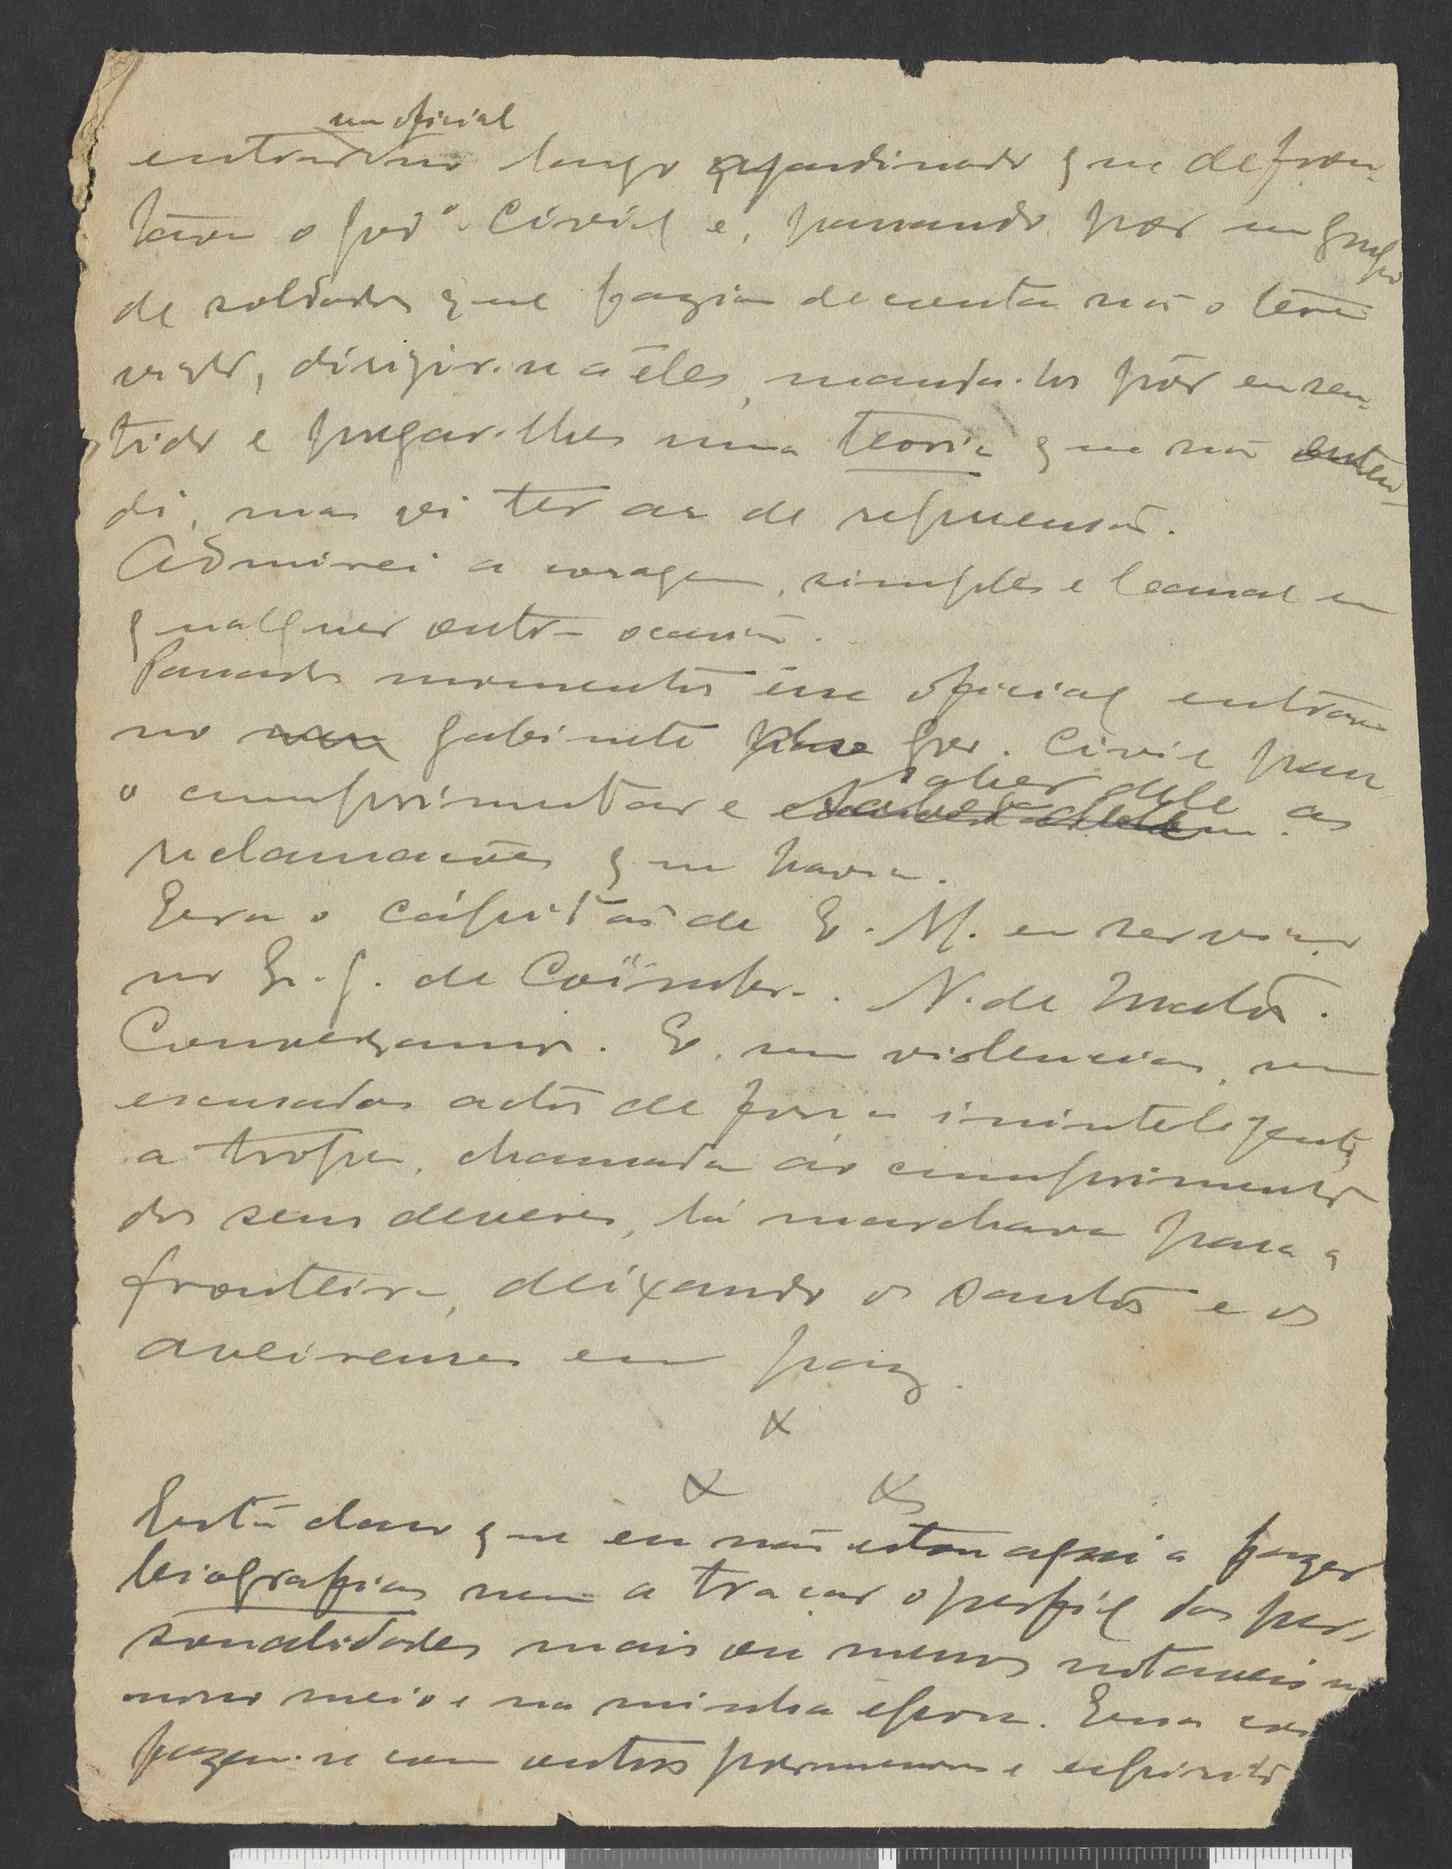 um oficial
entrar no largo ajardinado que defron-
tava o gov.º Civil e, passando por um grupo
de soldados que fazia de conta não o terem
visto, dirigir-se a êles, manda-los pôr em sen-
tido e pregar-lhes uma teoria que não enten-
di, mas vi ter ar de repreensão.
Admirei a coragem, simples e banal em
qualquer outra ocasião.
Passados momentos êsse oficial entrava
no gabinete do Gov. Civil para
o cumprimentar e saber dele as
reclamações que havia.
Era o capitão de E. M. em serviço
no Q. G. de Coïmbra. N. de Matos.
Conversamos. E, sem violencias, sem
escusados actos de força ininteligente,
a tropa, chamada ao cumprimento
dos seus deveres, lá marchava para a
fronteira, deixando os Santos e os
aveirenses em paz.
x
x x
Está claro que eu não estou aqui a fazer
biografias nem a traçar o perfil das per-
sonalidades mais ou menos notaveis no
nosso meio e na minha epoca. Essas
fazem-se com outros pormenores e espirito